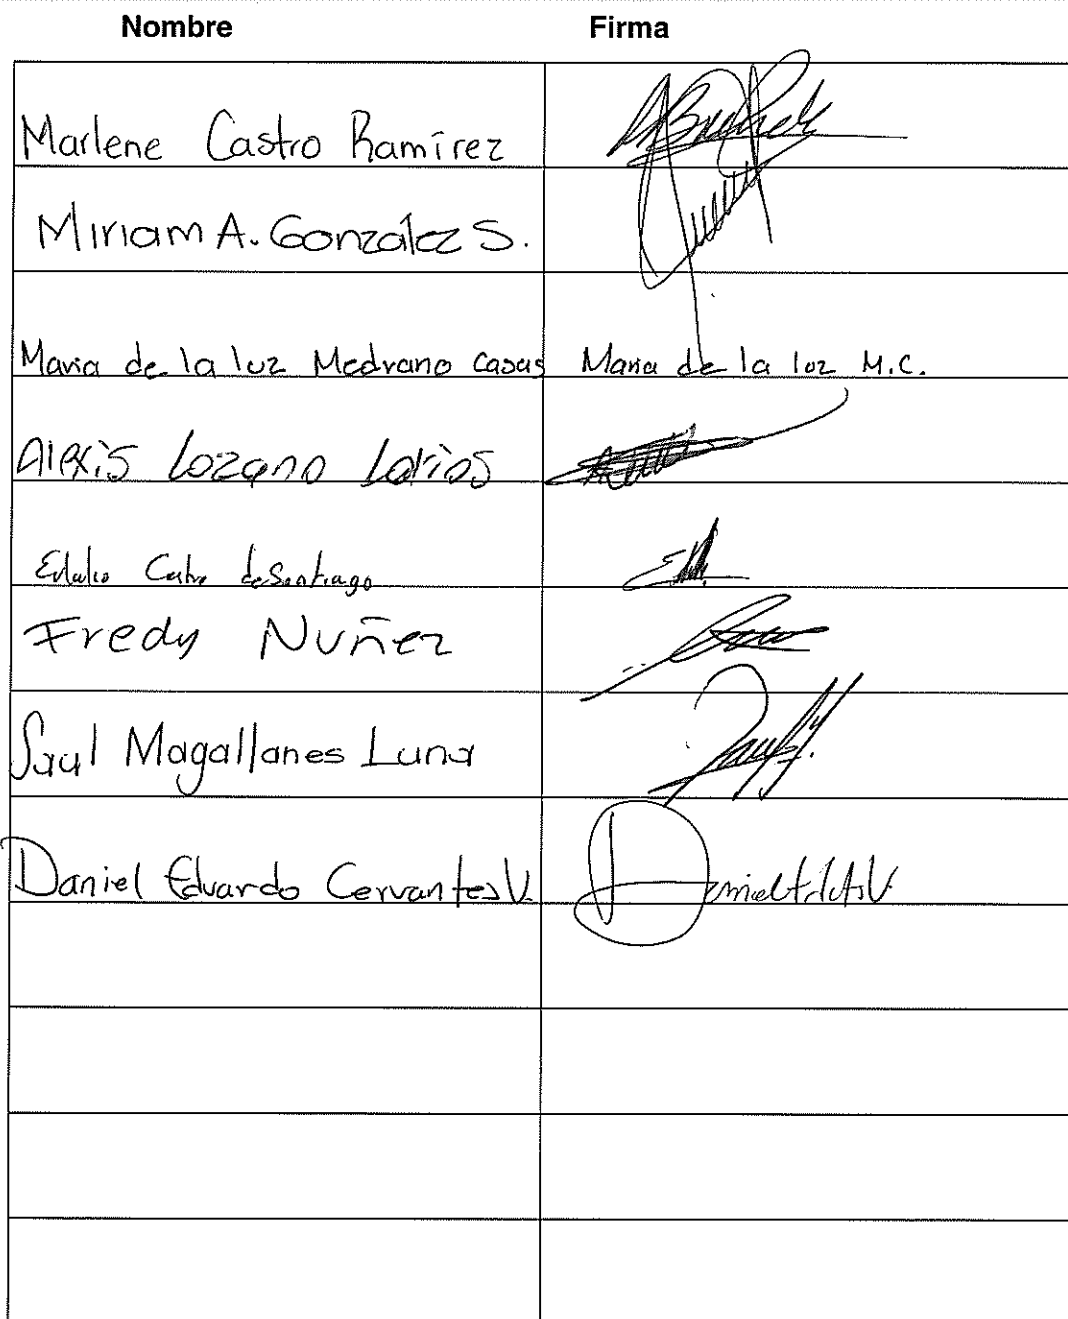 Nombre Firma
Marlene Castro Ramírez
Miriam A. González S.
Maria de la luz Medrano Casas Maria de la luz M.C.
Alexis Lozano Larios
de Santiago
Fredy Nuñez
Saul Magallanes Luna
Daniel Eduardo Cervantes V.